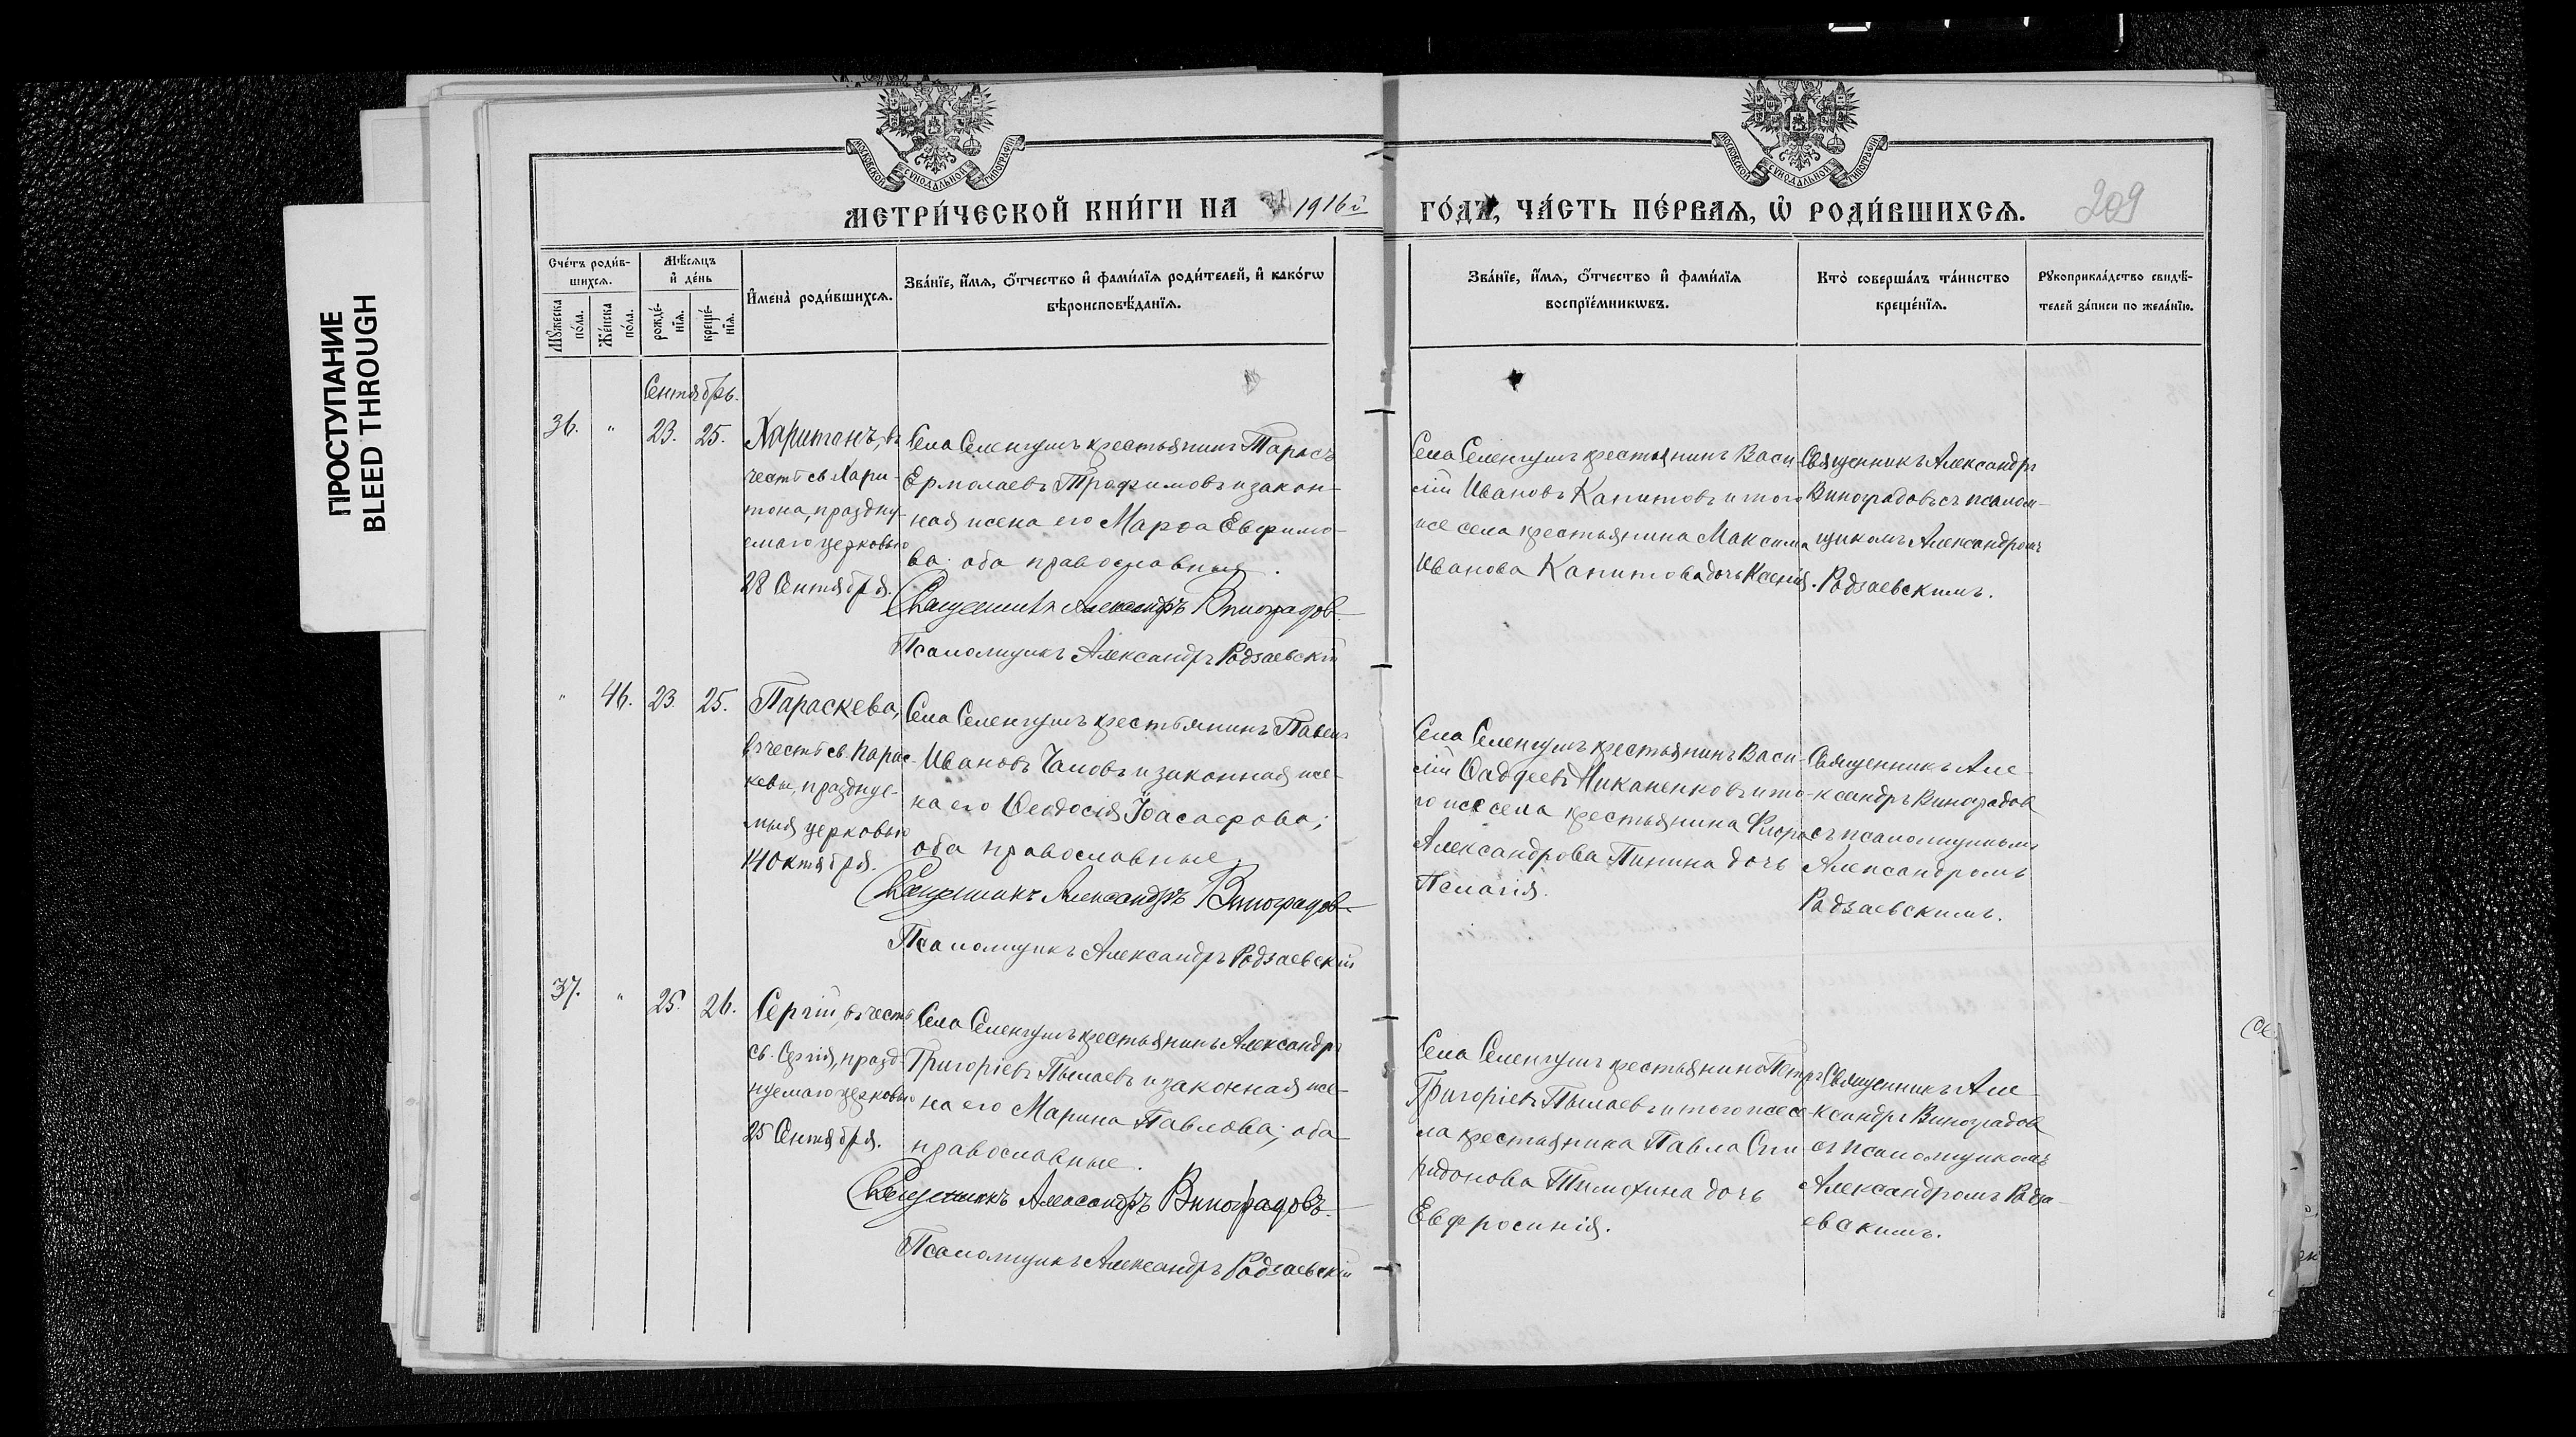 ПРОСТУПАНИЕ
BLEED THROUGH
МОСКОВСКОЙ СѴНОДАЛЬНОЙ ТИПОГРАФІИ
МОСКОВСКОЙ СѴНОДАЛЬНОЙ ТИПОГРАФІИ
МЕТРИ́ЧЕСКОЙ КНИ́ГИ НА 1916й ГО́ДЪ, ЧА́СТЬ ПЕ́РВАѦ, Ѡ҆ РОДИ́ВШИХСѦ.
209
Сче́тъ роди́в-
шихсѧ.
Мꙋ́жеска
по́ла.
Же́нска
по́ла.
Мѣ́сѧцъ
и҆ де́нь
рожде́-
нїѧ.
креще́-
нїѧ.
И҆мена̀ роди́вшихсѧ.
Зва́нїе, и҆́мѧ, ѻ҆́тчество и҆ фами́лїѧ роди́телей, и҆ како́гѡ
вѣроисповѣ́данїѧ.
Зва́нїе, и҆́мѧ, ѻ҆́тчество и҆ фами́лїѧ
воспрїе́мникѡвъ.
Кто̀ соверша́лъ та́инство
креще́нїѧ.
Рꙋкоприкла́дство свидѣ́-
телей за́писи по жела́нїю.
Сентябрь.
36. " 23. 25.
Харитонъ, въ
честь св. Хари-
тона, праздну-
емаго церковью
28 Сентября.
Села Селенгушъ крестьянинъ Тарасъ
Ермолаевъ Трофимовъ и закон-
ная жена его Марѳа Евфимо-
ва; оба православные.
Священникъ Александръ Виноградовъ
Псаломщикъ Александръ Радзаевскій
Села Селенгушъ крестьянинъ Васи-
лій Ивановъ Капитовъ и того
же села крестьянина Максима
Иванова Капитова дочь Ксенія.
Священникъ Александръ
Виноградовъ съ псалом-
щикомъ Александромъ
Радзаевскимъ.
" 46. 23. 25.
Параскева,
въ честь св. Парас-
кевы, праздуе-
мыя церковью
14 Октября.
Села Селенгушъ крестьянинъ Павелъ
Ивановъ Чамовъ и законная же-
на его Ѳеодосія Іоасафова;
оба православные.
Священникъ Александръ Виноградовъ
Псаломщикъ Александръ Радзаевскій
Села Селенгушъ крестьянинъ Васи-
лій Ѳаддеевъ Никаненковъ и то-
го же села крестьянина Флора
Александрова Пинина дочь
Пелагія.
Священникъ Але-
ксандръ Виноградовъ
съ псаломщикомъ
Александромъ
Радзаевскимъ.
37. " 25. 26.
Сергій, въ честь
св. Сергія, празд-
нуемаго церковью
25 Сентября.
Села Селенгушъ крестьянинъ Александръ
Григоріевъ Пылаевъ и законная же-
на его Марина Павлова; оба
православные.
Священникъ Александръ Виноградовъ
Псаломщикъ Александръ Радзаевскій
Села Селенгушъ крестьянинъ Петръ
Григоріевъ Пылаевъ и того же се-
ла крестьянина Павла Спи-
ридонова Тимохина дочь
Евфросинія.
Священникъ Але-
ксандръ Виноградовъ
съ псаломщикомъ
Александромъ Радза-
евскимъ.